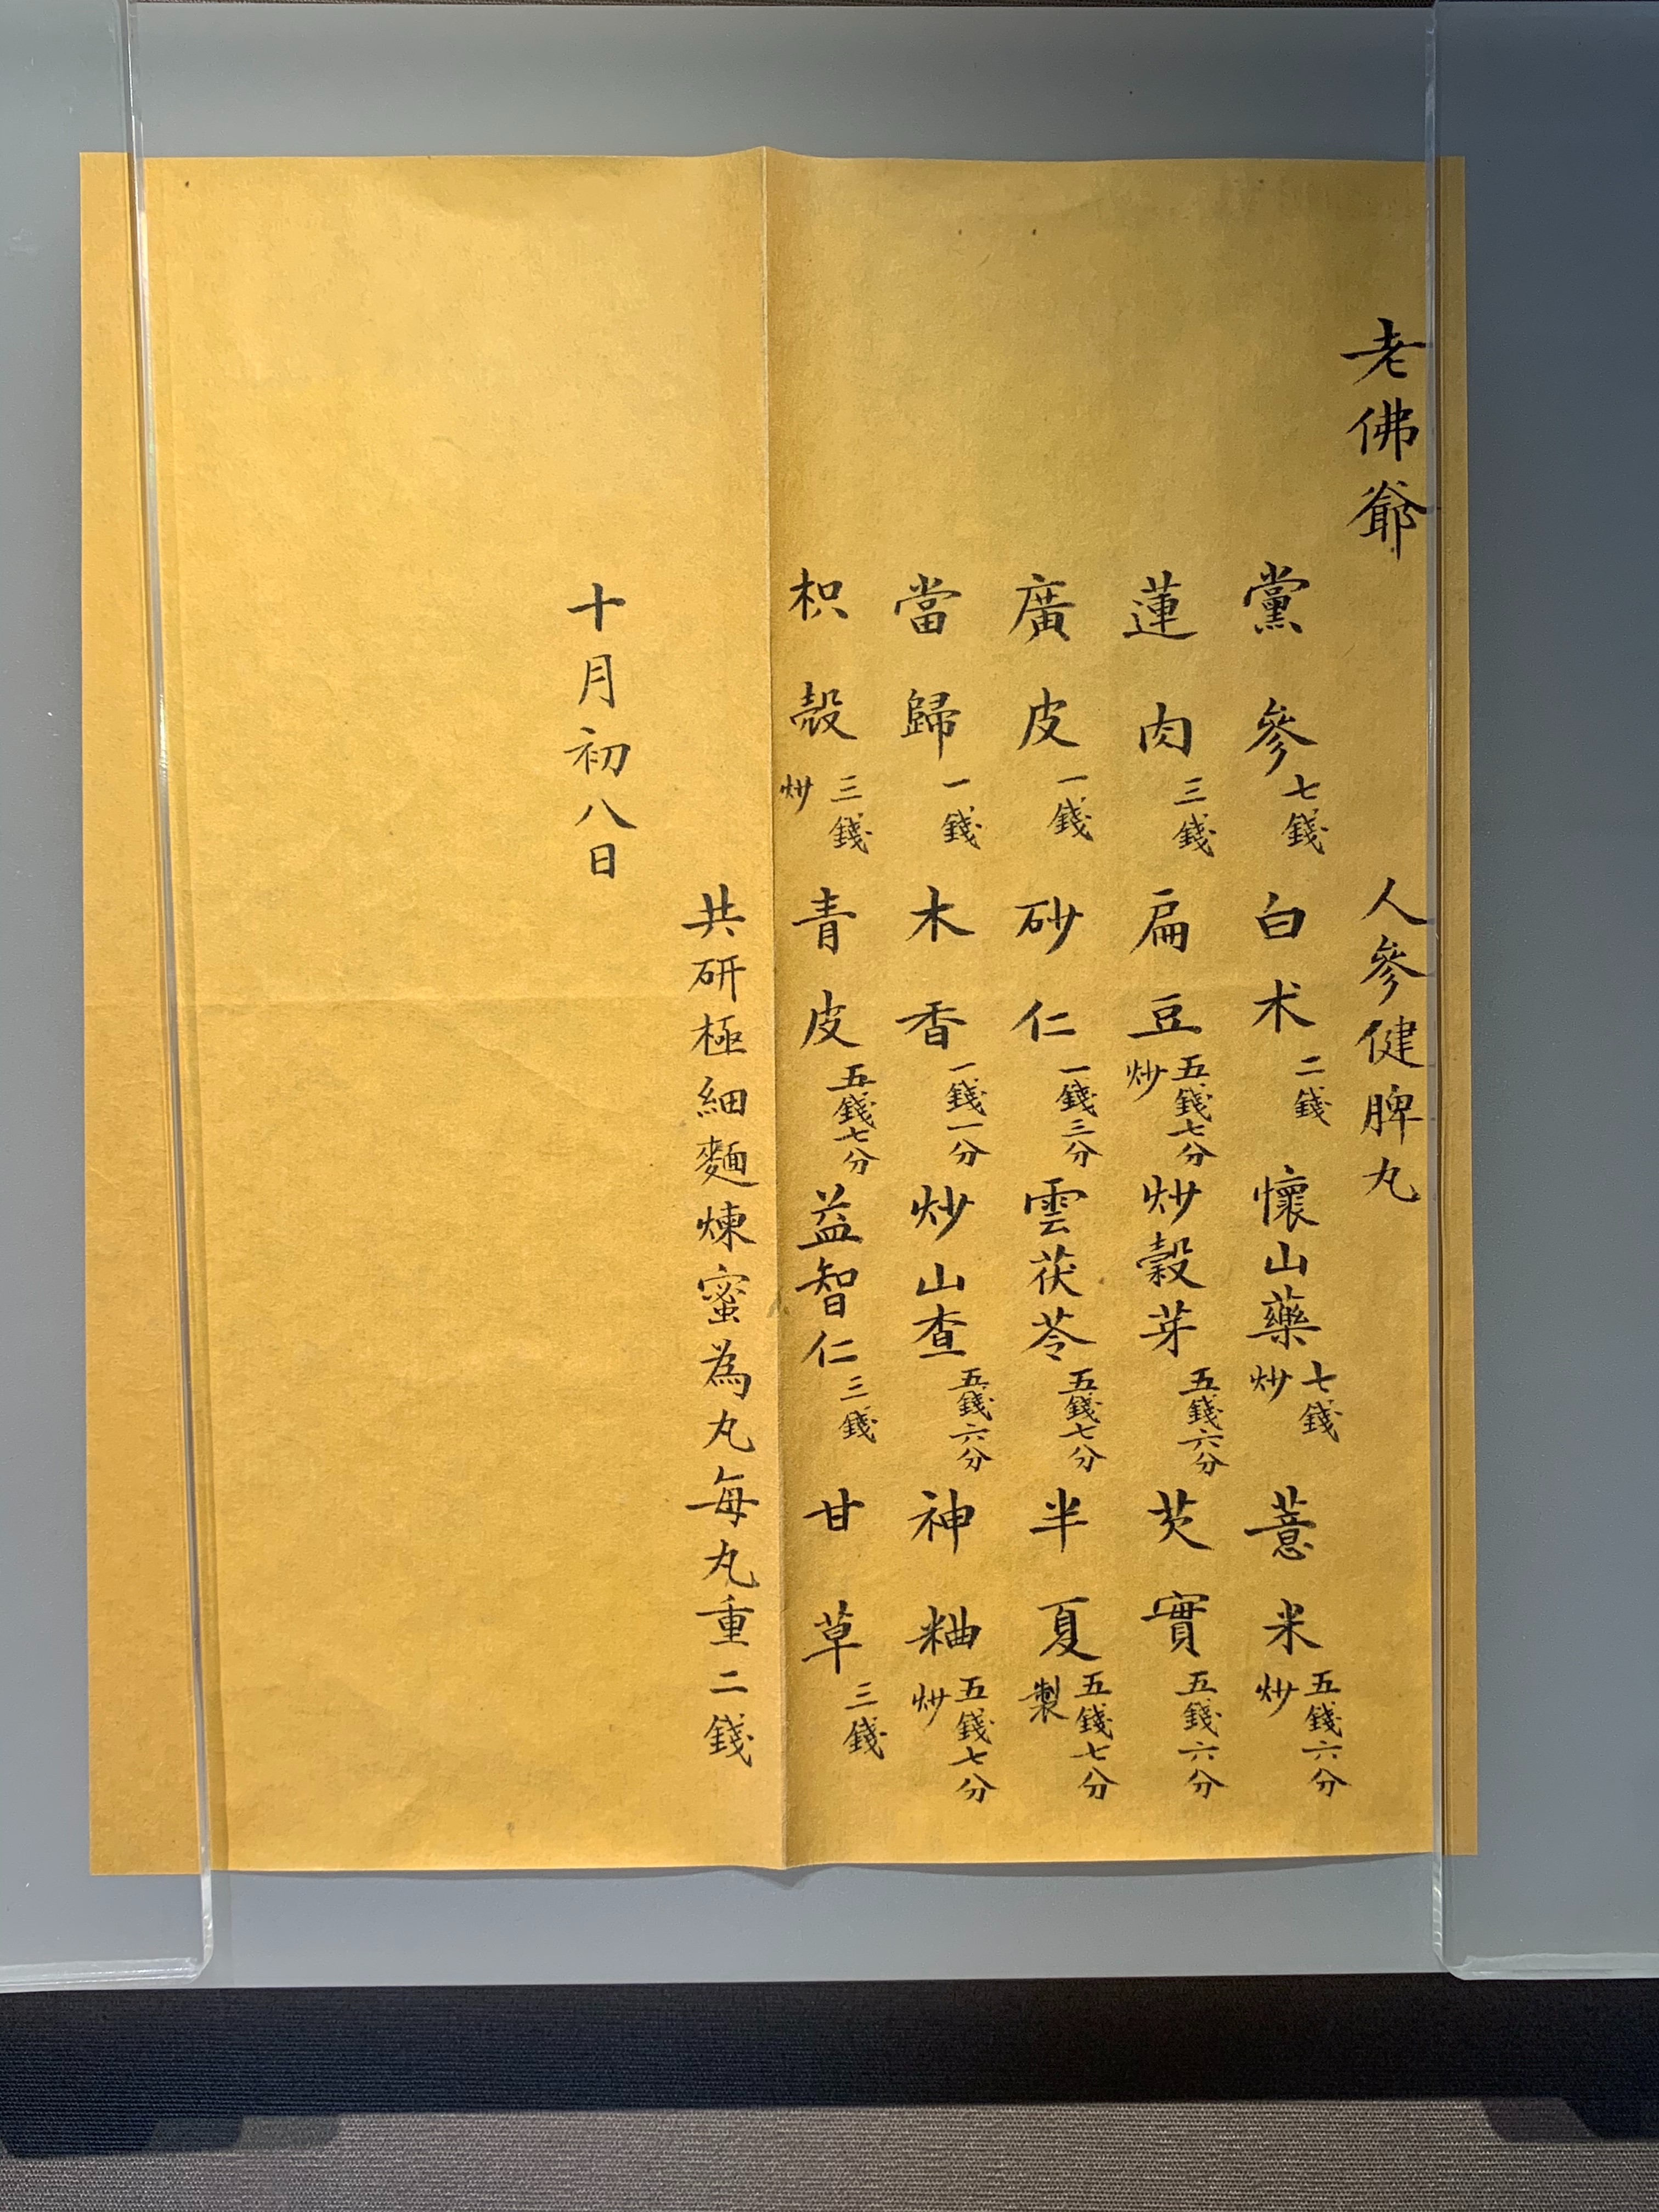 老佛爺 人參健脾丸
黨參七錢 白术二錢 懷山藥七錢炒 薏米五錢六分炒
蓮肉三錢 扁豆五錢七分炒 炒穀芽五錢六分 芡實五錢六分
廣皮一錢 砂仁一錢三分 雲茯苓五錢七分 半夏五錢七分製
當歸一錢 木香一錢一分 炒山查五錢六分 神粬五錢七分炒
枳殼三錢炒 青皮五錢七分 益智仁三錢 甘草三錢
共研極細麵煉蜜為丸每丸重二錢
十月初八日